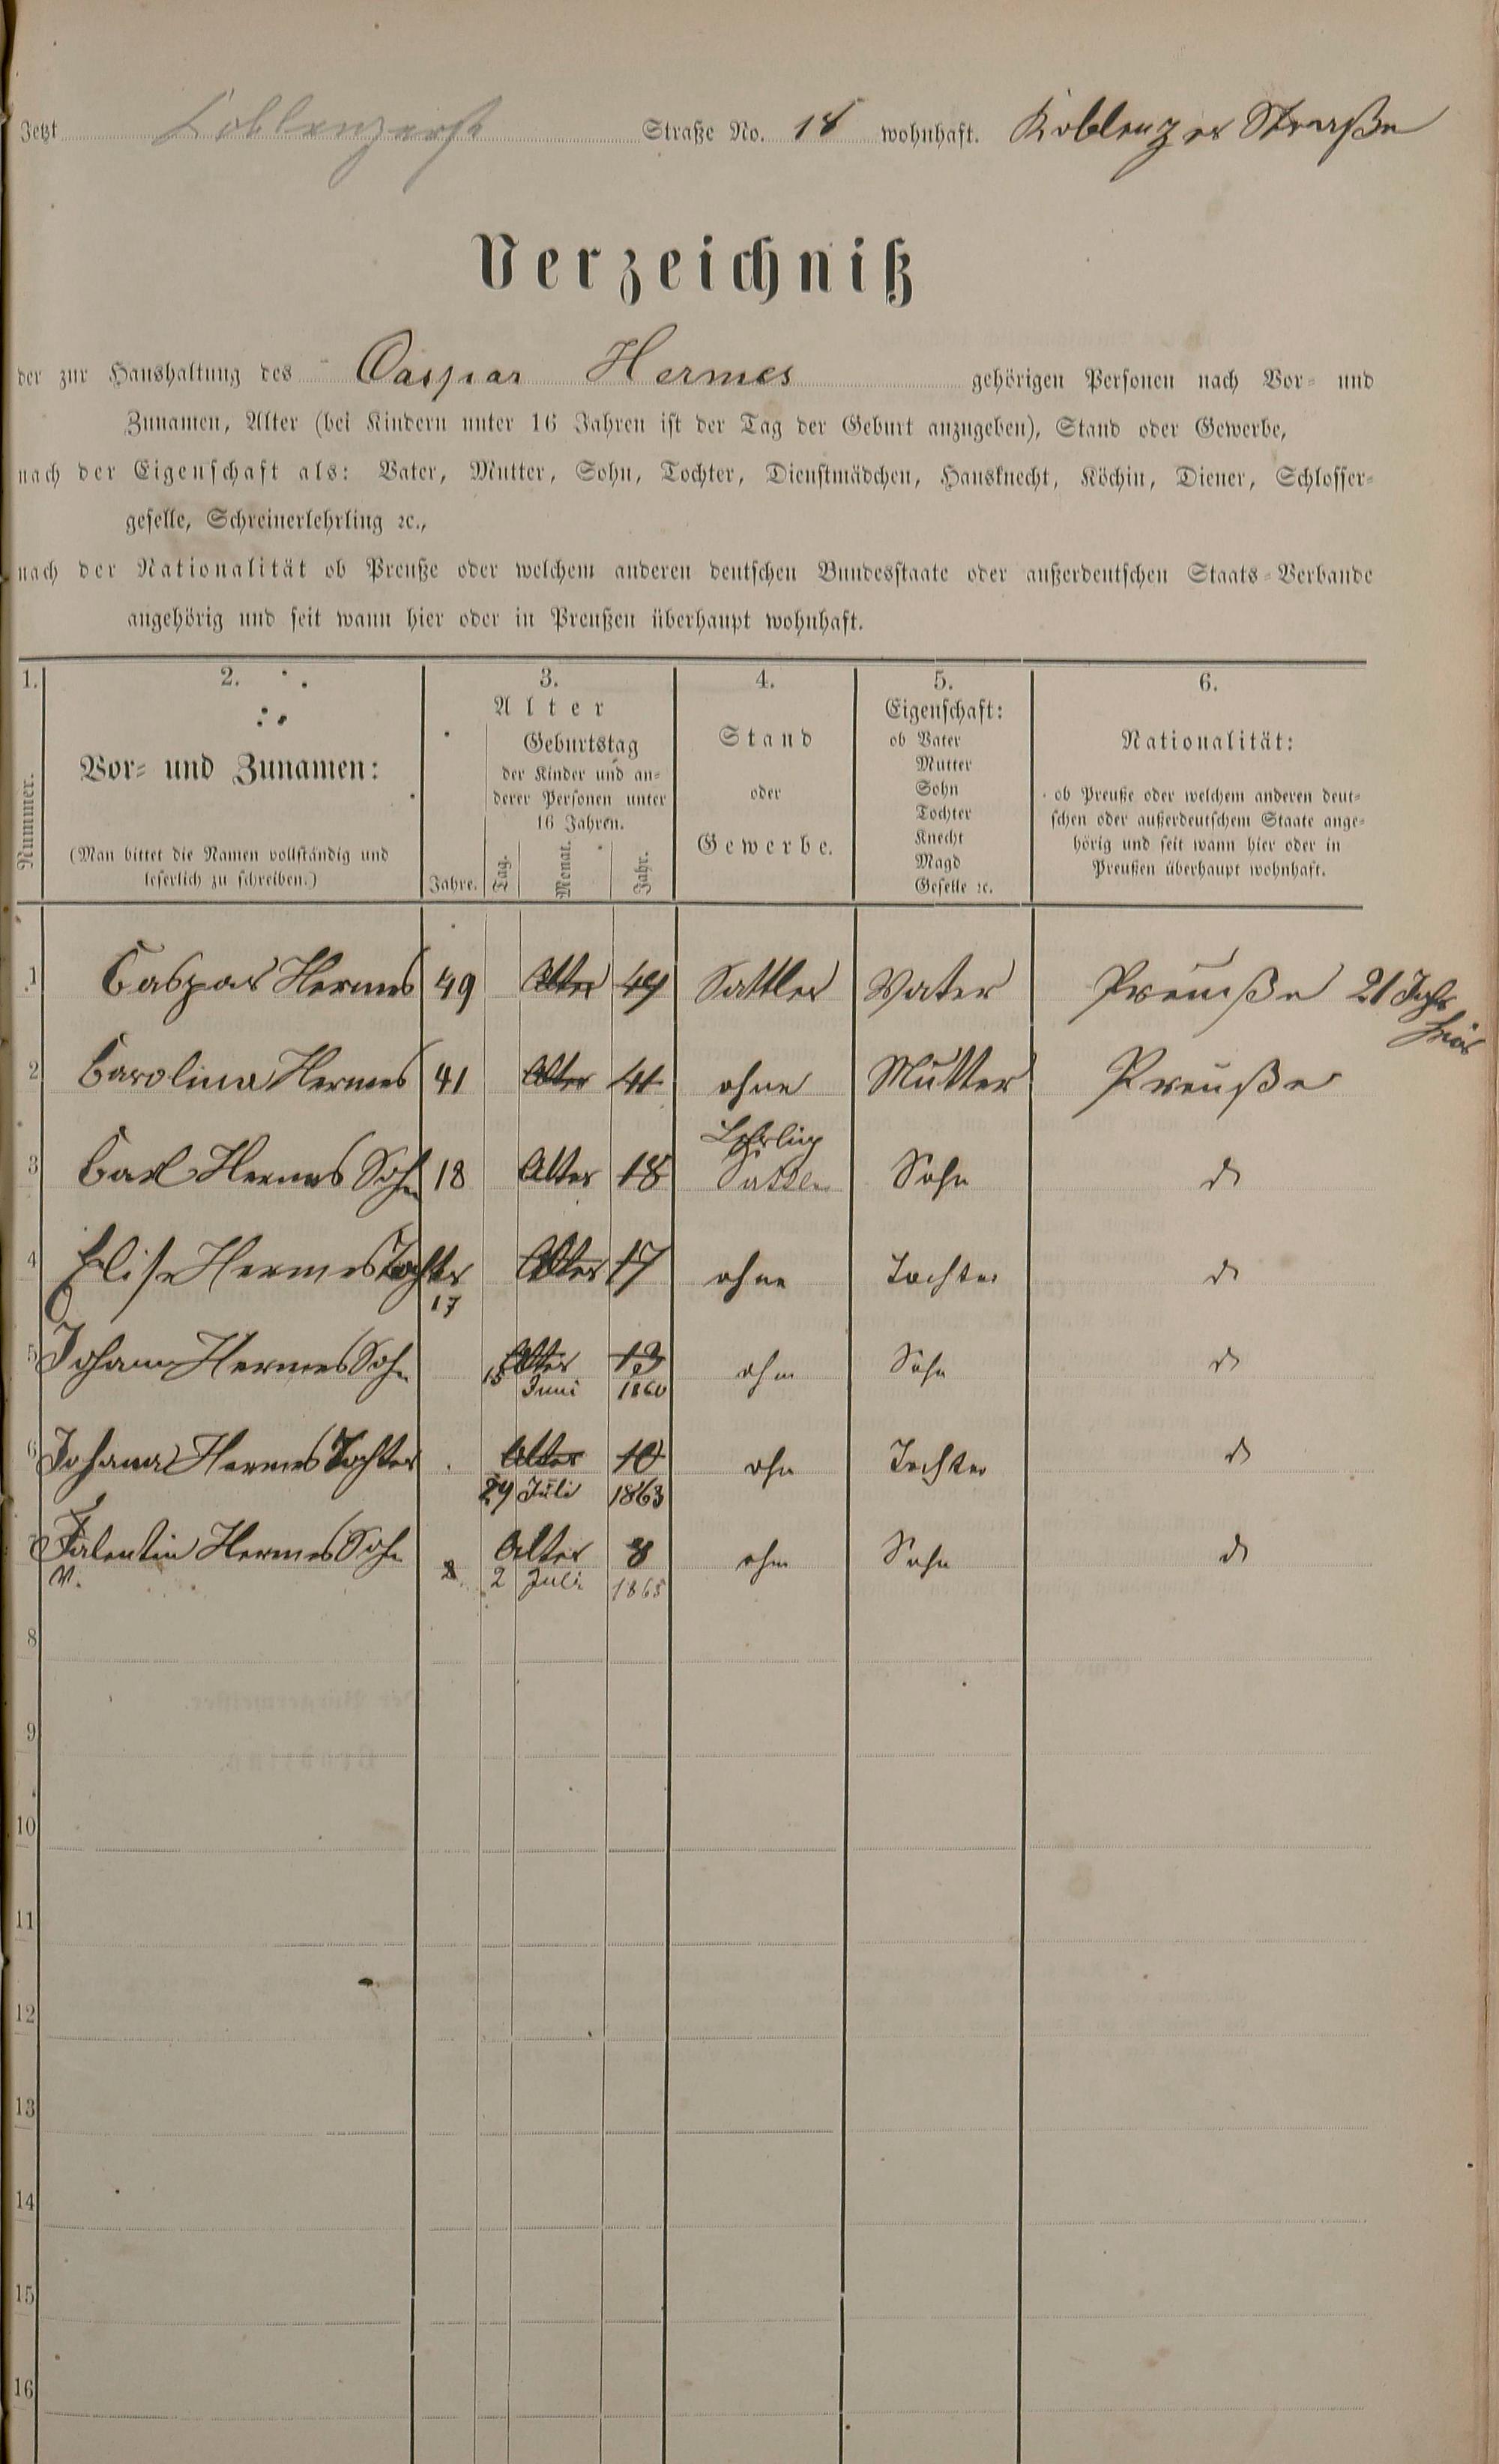 Jetzt Coblenzerst Straße No. 18 wohnhaft. Koblenzer Straße
Verzeichniß
der zur Haushaltung des Caspar Hermes gehörigen Personen nach Vor- und
Zunamen, Alter (bei Kindern unter 16 Jahren ist der Tag der Geburt anzugeben), Stand oder Gewerbe,
nach der Eigenschaft als: Vater, Mutter, Sohn, Tochter, Dienstmädchen, Hausknecht, Köchin, Diener, Schlosser-
geselle, Schreinerlehrling ꝛc.,
nach der Nationalität ob Preuße oder welchem anderen deutschen Bundesstaate oder außerdeutschen Staats-Verbande
angehörig und seit wann hier oder in Preußen überhaupt wohnhaft.
1. 2. 3. 4. 5. 6.
Nummer.
Vor- und Zunamen:
(Man bittet die Namen vollständig und
leserlich zu schreiben.)
Alter
Jahre.
Geburtstag
der Kinder und an-
derer Personen unter
16 Jahren.
Tag. Monat. Jahr.
Stand
oder
Gewerbe.
Eigenschaft:
ob Vater
Mutter
Sohn
Tochter
Knecht
Magd
Geselle ꝛc.
Nationalität:
ob Preuße oder welchem anderen deut-
schen oder außerdeutschem Staate ange-
hörig und seit wann hier oder in
Preußen überhaupt wohnhaft.
1 Caspar Hermes 49 Alter 49 Sattler Vater Preuße 21 Jahr
hier
2 Carolina Hermes 41 Alter 41 ohne Mutter Preuße
Lehrling
3 Carl Hermes Sohn 18 Alter 18 Sattler Sohn do
4 Elise Hermes Tochter Alter 17 ohne Tochter do
17
5 Johann Hermes Sohn Alter 13 ohne Sohn do
15 Juni 1860
6 Johana Hermes Tochter Alter 10 ohn Tochter do
29 Juli 1863
7 Falentin Hermes Sohn Alter 8 ohne Sohn do
V. 2 Juli 1865
8
9
10
11
12
13
14
15
16